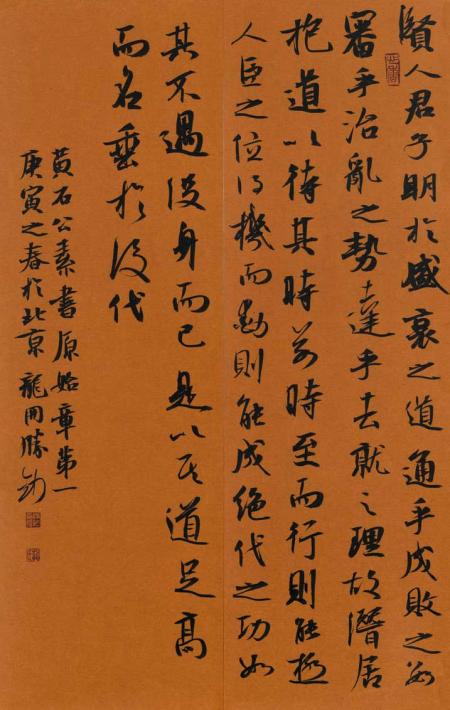 賢人君子明於盛衰之道通乎成敗之數
審乎治亂之勢達乎去就之理故潛居
抱道以待其時若時至而行則能極
人臣之位得機而動則能成絕代之功如
其不遇没身而已是以其道足高
而名垂於後代
黃石公素書原始章第一
庚寅之春於北京龍開勝